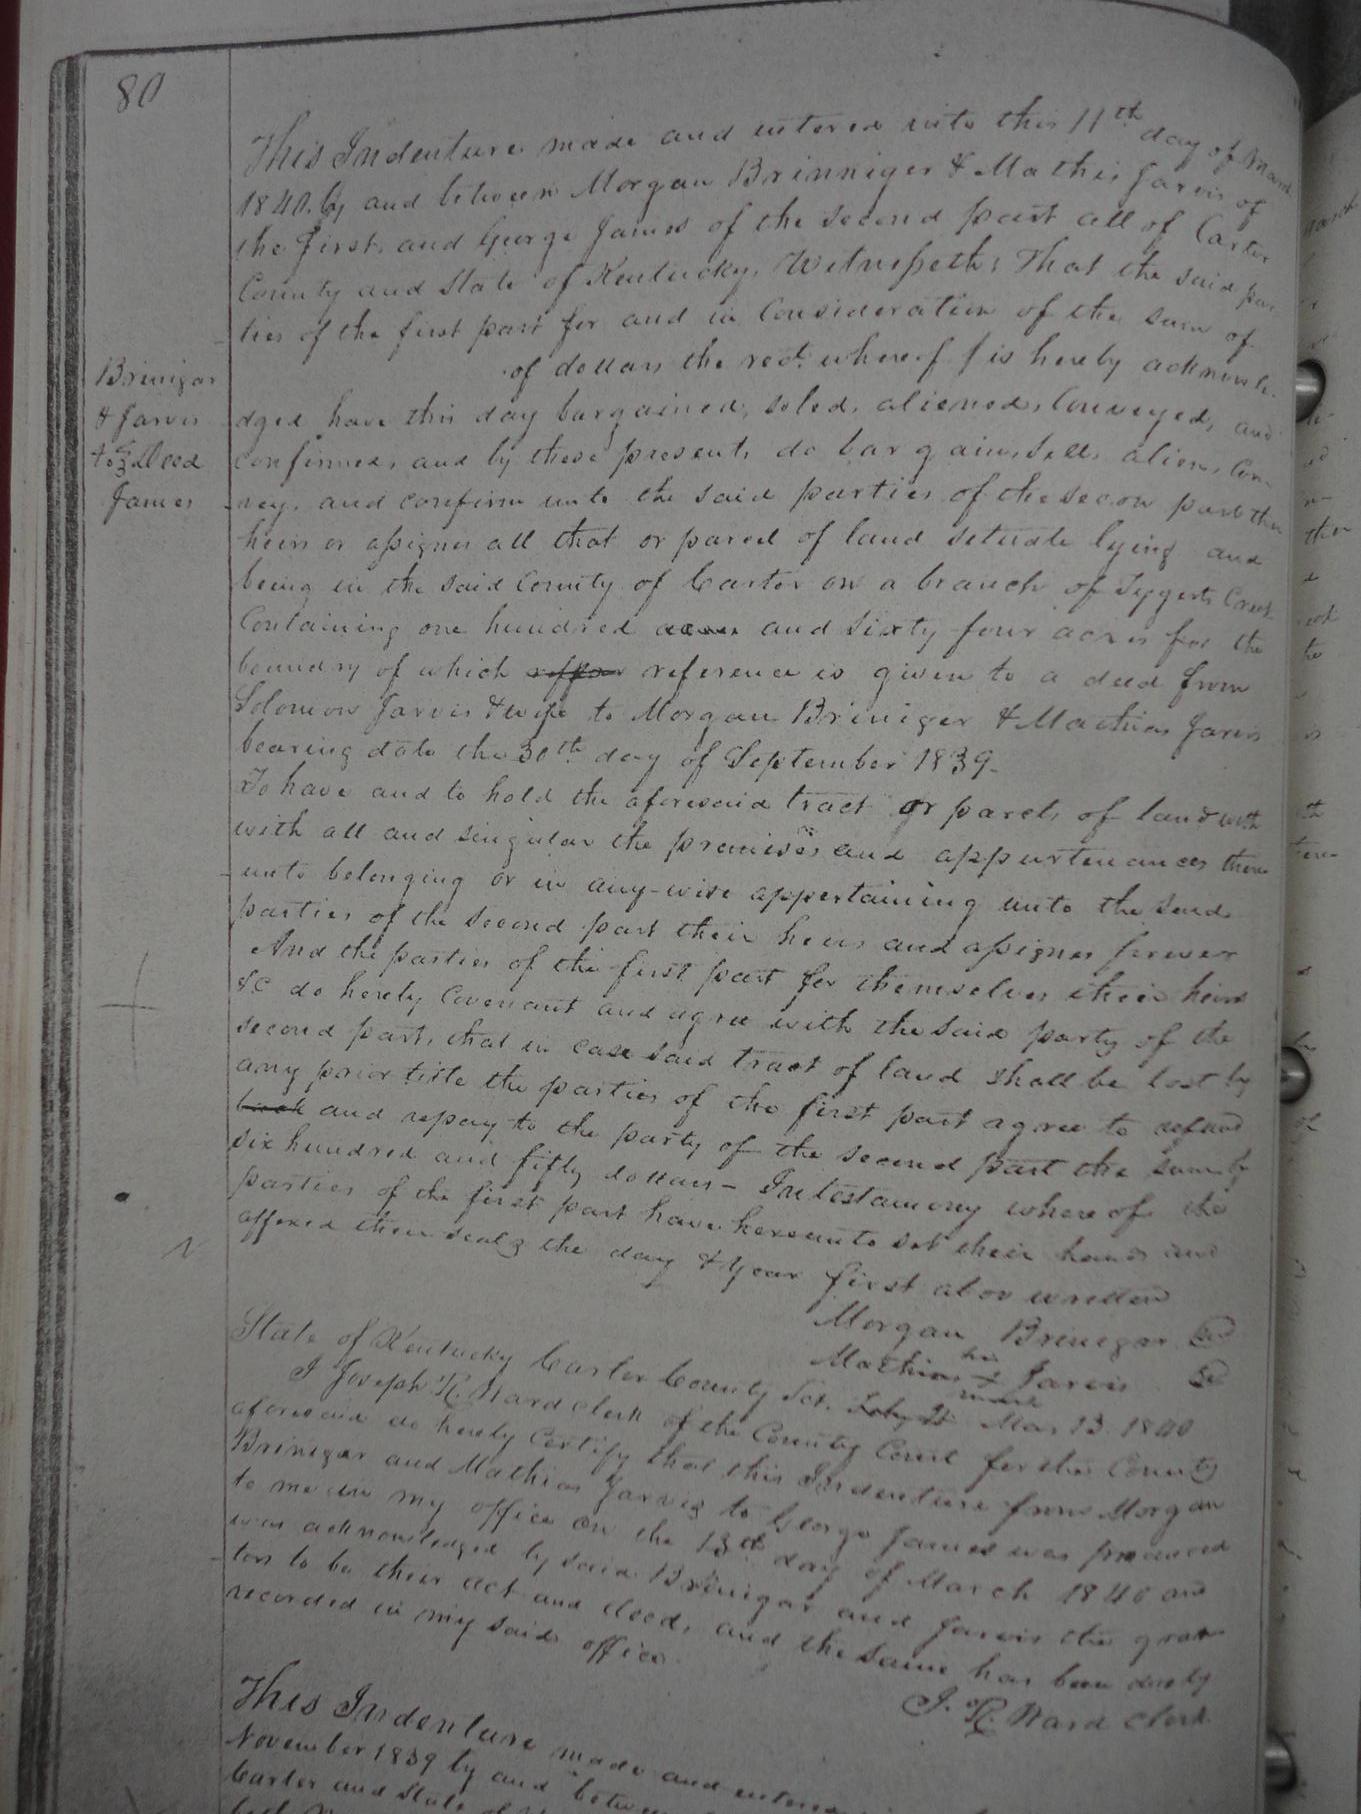 80
This Indenture made and entered into this 11th day of March
1840. by and between Morgan Brinniger & Mathis Jarvis of
the first, and George James of the second part all of Carter
County and State of Kentucky, Witnesseth; That the said par
ties of the first part for and in Consideration of the sum of
of dollars the rect. whereof is hereby acknowle-
Brinigar
& Jarvis
to Deed
James
dged have this day bargained, soled, aliened, Conveyed, and
confirmed, and by these presents do bargain, sell, alien, Con-
vey, and confirm unto the said parties of the secon part their
heirs or assignes all that or parcel of land situate lying and
being in the said County of Carter on a branch of Tygerts Creek
Containing one hundred acres and sixty four acres for the
boundry of which reference is given to a deed from
Solomon Jarvis & wife to Morgan Briniger & Mathias Jarvis
bearing date the 30th day of September 1839-
To have and to hold the aforesaid tract or parcel, of land with
with all and singular the premises and appurtenances there
unto belonging or in any-wise appertaining unto the said
parties of the second part their heirs and assignes forever
And the parties of the first part for themselves their heirs
&C do hereby Covenant and agree with the said party of the
second part, that in case said tract of land shall be lost by
any prior title the parties of the first part agree to refund
back and repay to the party of the second part the sum of
six hundred and fifty dollars - In testamony whereof the
parties of the first part have hereunto set their hands and
affixed their seals the day & year first abov written
Morgan Brinegar Seal
Mathias his x mark Jarvis Seal
State of Kentucky Carter County Sct. Mar 13. 1840
I Joseph R. Ward clerk of the County Court for the County
aforesaid do hereby Certify that this Indenture from Morgan
Brinegar and Mathias Jarvis to George James was produced
to me in my office on the 13th day of March 1840 and
was acknowledged by said Brinigar and Jarvis the gran
tors to be their act and deed, and the same has been duly
recorded in my said office.
J. R. Ward Clerk
This Indenture made and entered
November 1839 by and between
Carter and State of